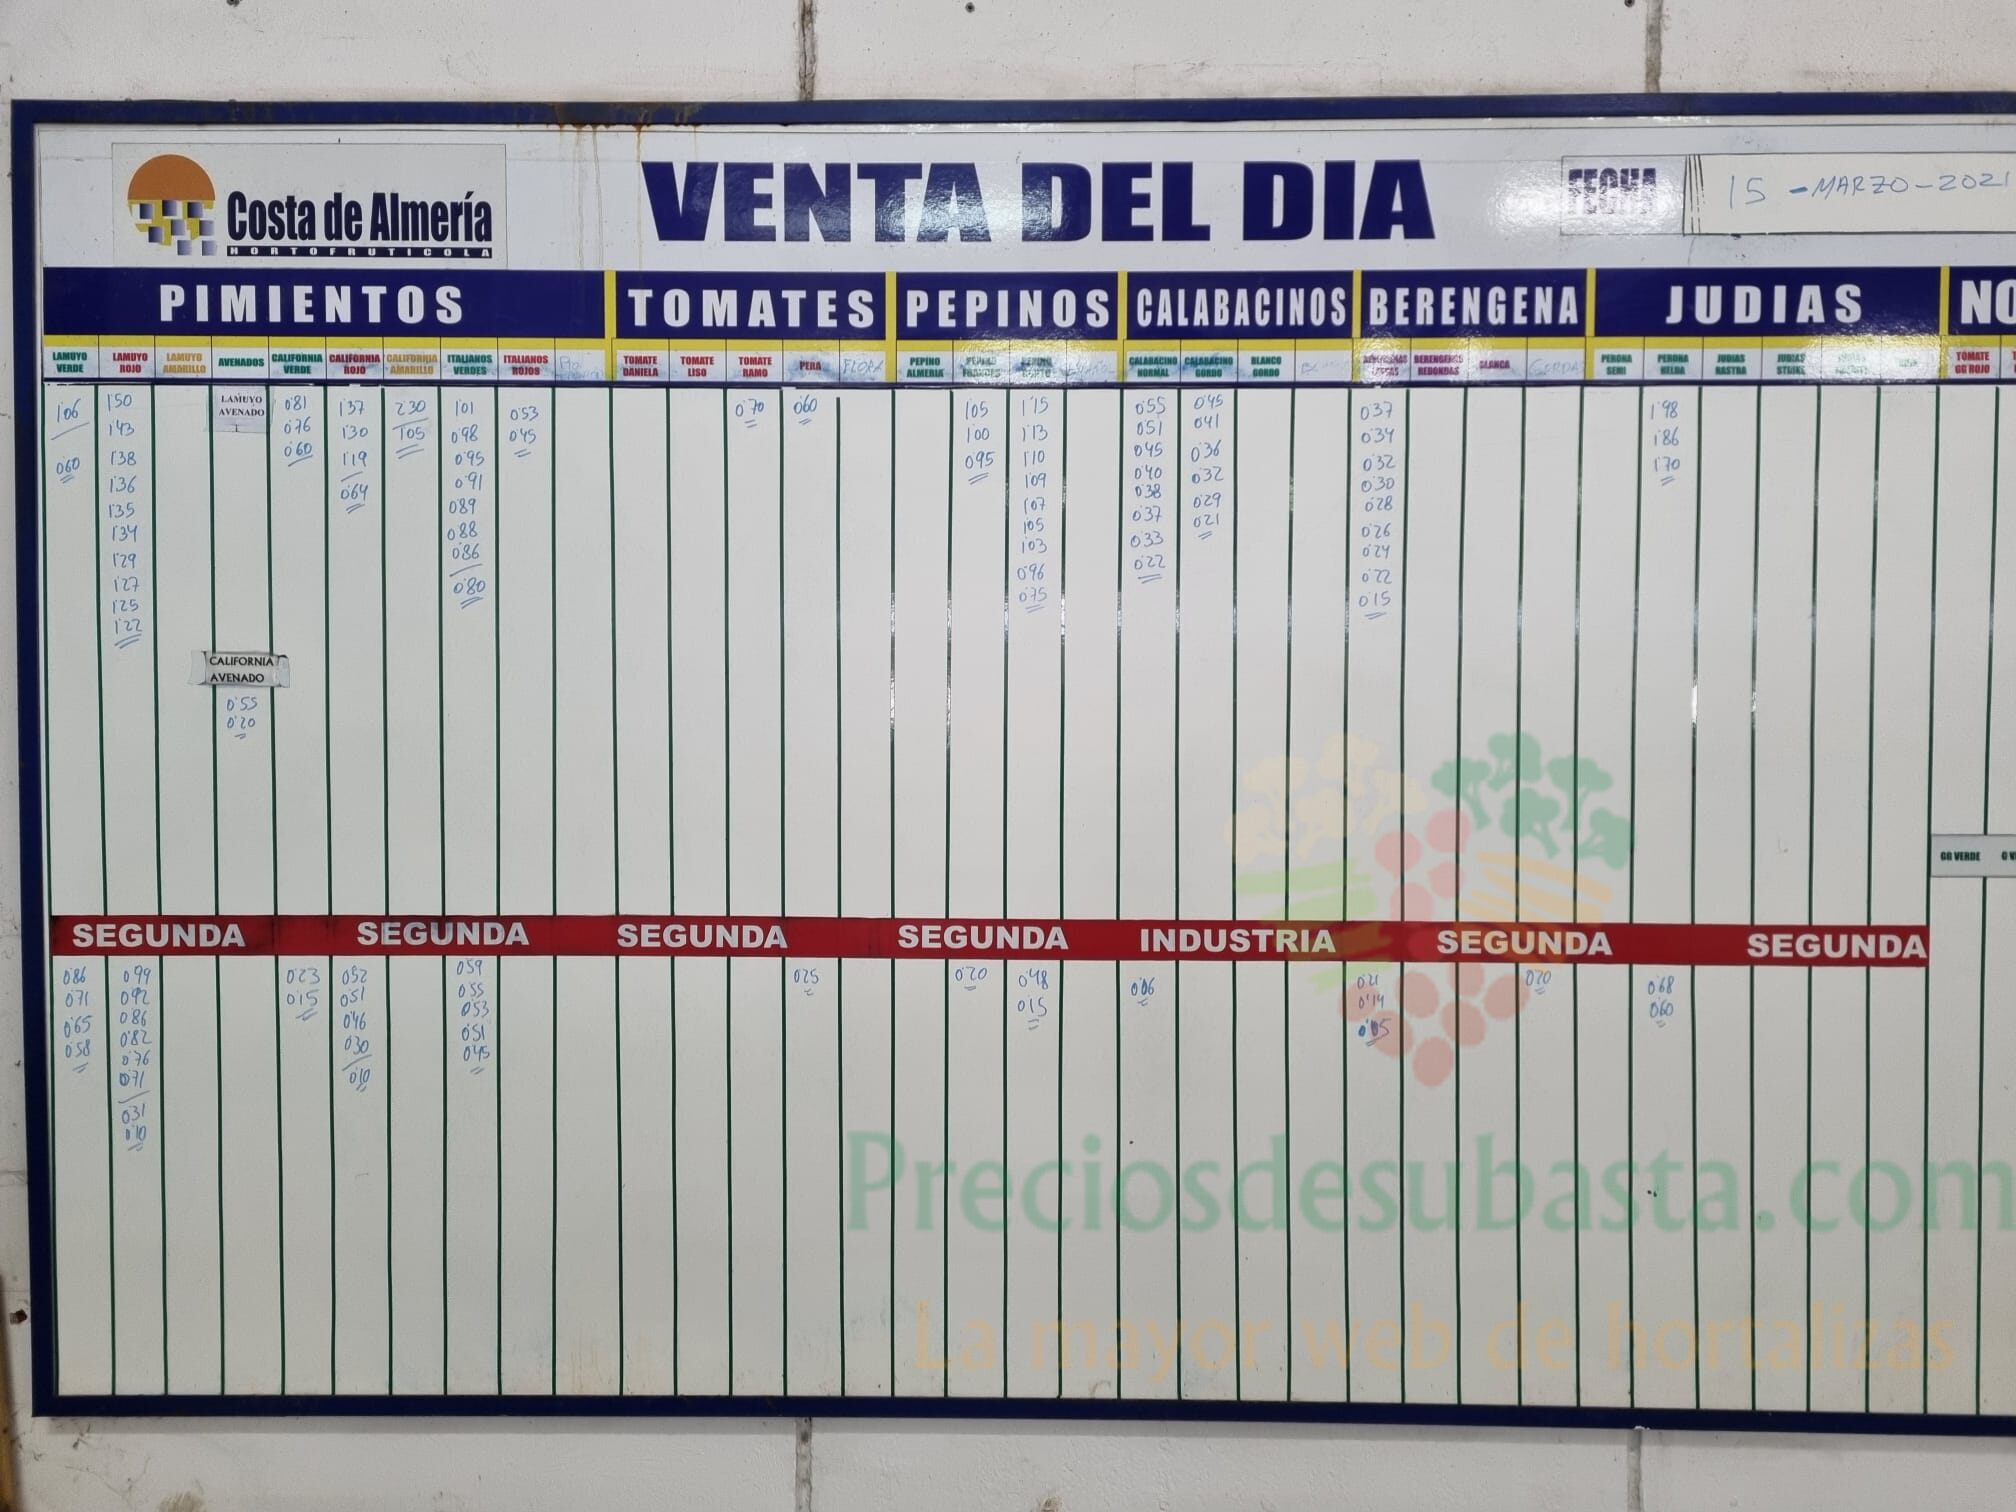 Costa de Almería
HORTOFRUTICOLA
VENTA DEL DIA
FECHA
15 - MARZO - 2021
PIMIENTOS TOMATES PEPINOS CALABACINOS BERENGENA JUDIAS NO
LAMUYO VERDE
LAMUYO ROJO
LAMUYO AMARILLO
AVENADOS
CALIFORNIA VERDE
CALIFORNIA ROJO
CALIFORNIA AMARILLO
ITALIANOS VERDES
ITALIANOS ROJOS
TOMATE DANIELA
TOMATE LISO
TOMATE RAMO
PERA
FLORA
PEPINO ALMERIA
PEPINO FRANCES
PEPINO CORTO
CALABACINO NORMAL
CALABACINO GORDO
BLANCO GORDO
BERENGENAS LARGAS
BERENGENAS REDONDAS
BLANCA
GORDA
PERONA SEMI
PERONA HELDA
JUDIAS RASTRA
JUDIAS STRIKE
TOMATE GG ROJO
1'06
0'60
1'50
1'43
1'38
1'36
1'35
1'34
1'29
1'27
1'25
1'22
LAMUYO
AVENADO
CALIFORNIA
AVENADO
0'55
0'20
0'81
0'76
0'60
1'37
1'30
1'19
0'64
2'30
1'05
1'01
0'98
0'95
0'91
0'89
0'88
0'86
0'80
0'53
0'45
0'70
0'60
1'05
1'00
0'95
1'15
1'13
1'10
1'09
1'07
1'05
1'03
0'96
0'75
0'55
0'51
0'45
0'40
0'38
0'37
0'33
0'22
0'45
0'41
0'36
0'32
0'29
0'21
0'37
0'34
0'32
0'30
0'28
0'26
0'24
0'22
0'15
1'98
1'86
1'70
GG VERDE
SEGUNDA SEGUNDA SEGUNDA SEGUNDA INDUSTRIA SEGUNDA SEGUNDA
0'86
0'71
0'65
0'58
0'99
0'92
0'86
0'82
0'76
0'71
0'31
0'10
0'23
0'15
0'52
0'51
0'46
0'30
0'10
0'59
0'55
0'53
0'51
0'45
0'25
0'20
0'48
0'15
0'06
0'21
0'14
0'05
0'20
0'68
0'60
Preciosdesubasta.com
La mayor web de hortalizas